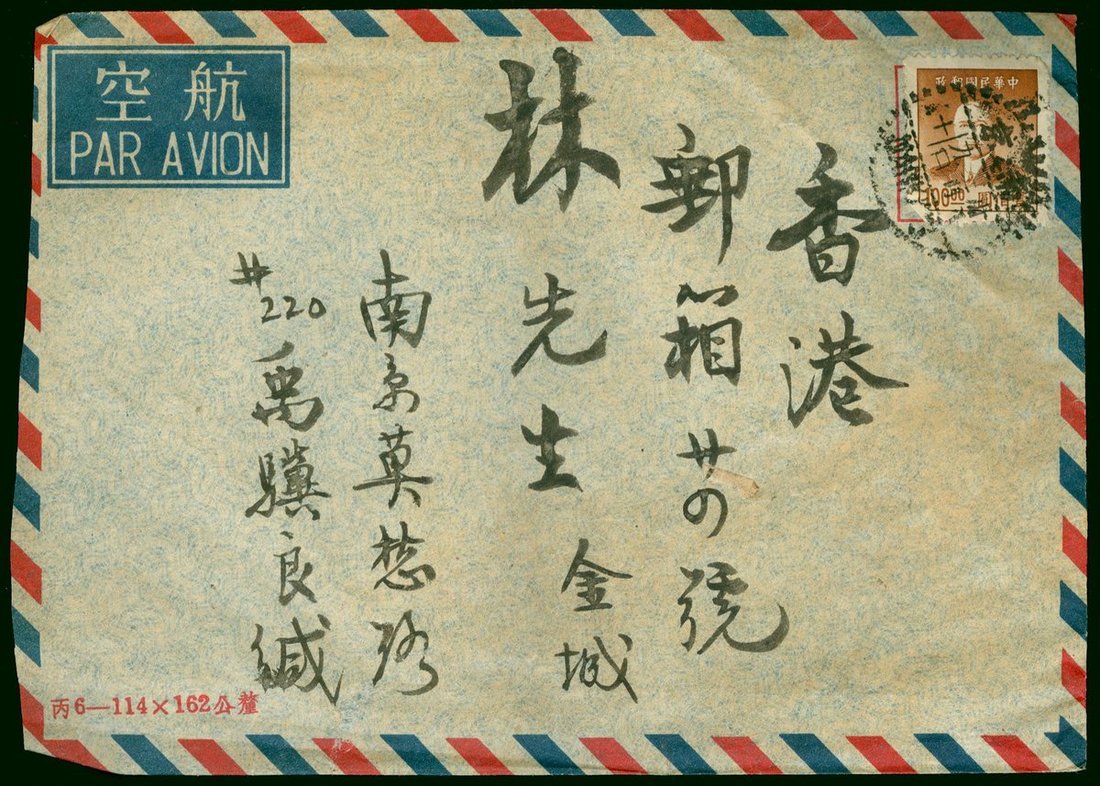 航空
PAR AVION
中華民國郵政
100.00
香港
郵箱廿四號
林先生 金城
南京莫愁路
#220
禹驥良緘
丙6—114×162公釐